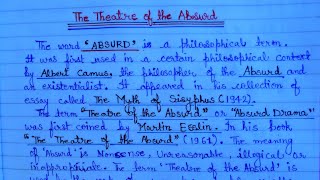 The Theatre of the Absurd
The word "ABSURD" is a philosophical term.
It was first used in a certain philosophical context
by Albert Camus, the philosopher of the Absurd and
an existentialist. It appeared in his collection of
essay called The Myth of Sisyphus (1942).
The term "Theatre of the Absurd" or "Absurd Drama"
was first coined by Martin Esslin. In his book
"The Theatre of the Absurd" (1961). The meaning
of 'Absurd' is Nonsense, Unreasonable, illogical or
inappropriate. The term 'Theatre of the Absurd' is